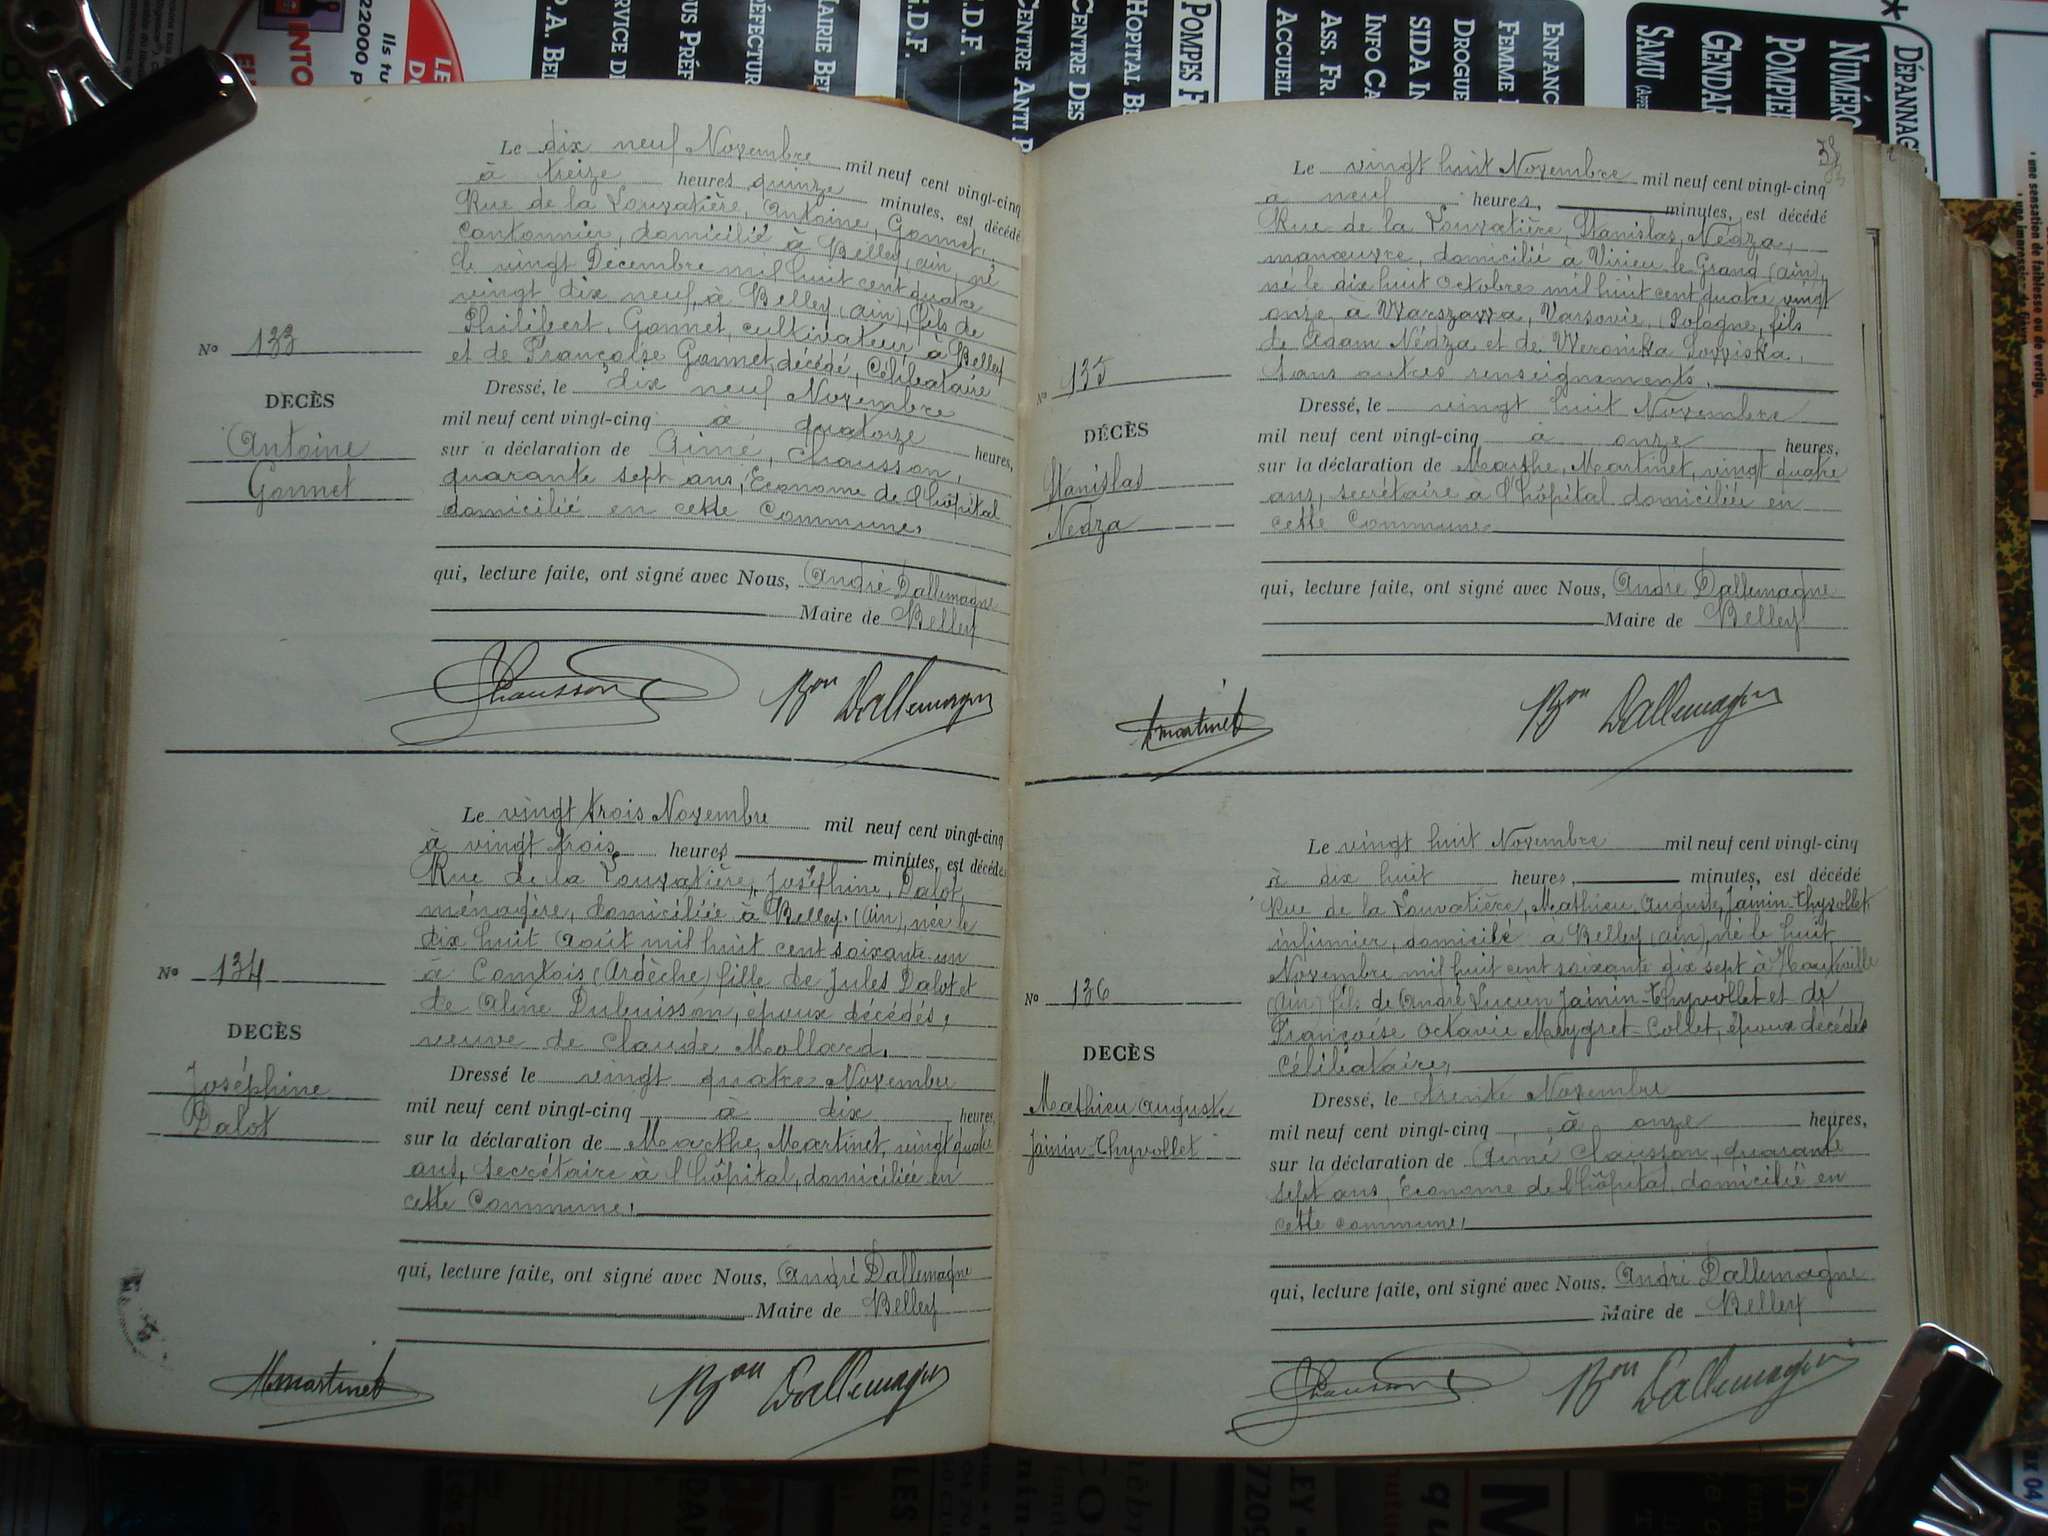 Le dix neuf Novembre mil neuf cent vingt-cinq
à treize heures quinze minutes, est décédé
Rue de la Louvatière, Antoine, Gonnet,
Cantonnier, domicilié à Belley, ain, né
le vingt Décembre mil huit cent quatre
vingt dix neuf, à Belley (ain), fils de
Philibert, Gonnet, cultivateur, à Belley
et de Françoise Gonnet, décédé, Célibataire
Dressé, le dix neuf Novembre
mil neuf cent vingt-cinq à quatorze heures,
sur a déclaration de Aimé, Chausson,
quarante sept ans, Econome de l'hôpital
domicilié en cette Commune,
qui, lecture faite, ont signé avec Nous, André Dallemagne
Maire de Belley
Chausson Bon Dallemagne
No 133
DECÈS
Antoine
Gonnet
Le vingt trois Novembre mil neuf cent vingt-cinq
à vingt trois heures minutes, est décédée
Rue de la Louvatière, Joséphine, Dalot,
ménagère, domiciliée à Belley (ain), née le
dix huit Août mil huit cent soixante un
à Comtois (Ardèche) fille de Jules Dalot et
de Aline Dubuisson, époux décédés,
veuve de Claude Mollard.
Dressé le vingt quatre Novembre
mil neuf cent vingt-cinq à dix heures,
sur la déclaration de Marthe, Martinet, vingt quatre
ans, secrétaire à l'hôpital, domiciliée en
cette Commune,
qui, lecture faite, ont signé avec Nous, André Dallemagne
Maire de Belley
Mmartinet Bon Dallemagne
No 134
DECÈS
Joséphine
Dalot
Le vingt huit Novembre mil neuf cent vingt-cinq
a neuf heures, minutes, est décédé
Rue de la Louvatière, Stanislas, Nédza,
manœuvre, domicilié à Virieu le Grand (ain),
né le dix huit Octobre mil huit cent quatre vingt
onze à Warszawa, Varsovie, Pologne, fils
de Adam Nédza et de Weronika
Sans autres renseignements.
Dressé, le vingt huit Novembre
mil neuf cent vingt-cinq à onze heures,
sur la déclaration de Marthe, Martinet, vingt quatre
ans, secrétaire à l'hôpital domiciliée en
cette Commune
qui, lecture faite, ont signé avec Nous, André Dallemagne
Maire de Belley
Mmartinet Bon Dallemagne
No 135
DÉCÈS
Stanislas
Nedza
Le vingt huit Novembre mil neuf cent vingt-cinq
à dix huit heures, minutes, est décédé
Rue de la Louvatière, Mathieu Auguste, Jainin-Thyvollet
infirmier, domicilié a Belley (ain), né le huit
Novembre mil huit cent soixante dix sept à Hauteville
(ain) fils de André Lucien Jainin-Thyvollet et de
Françoise Octavie Meygret-Collet, époux décédés
Célibataire,
Dressé, le trente Novembre
mil neuf cent vingt-cinq à onze heures,
sur la déclaration de Aimé Chausson, quarante
sept ans, Econome de l'hôpital, domicilié en
cette commune,
qui, lecture faite, ont signé avec Nous, André Dallemagne
Maire de Belley
Chausson Bon Dallemagne
No 136
DECÈS
Mathieu Auguste
Jainin-Thyvollet
DÉPANNAG
NUMÉRO
POMPIE
GENDAR
SAMU
ENFANC
FEMME
DROGUE
SIDA IN
INFO CA
ASS. FR.
ACCUEIL
POMPES F
HOPITAL BE
CENTRE DES
CENTRE ANTI P
G.D.F.
MAIRIE BE
SERVICE DE
P.A. BE
22000
INTO